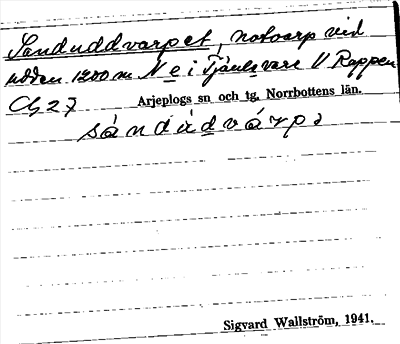 Sanduddvarpet, notvarp vid
udden 1200 m N e i Tjäulevare V Rappen
Cg 27 Arjeplogs sn och tg, Norrbottens län.
sándúdvárpə
Sigvard Wallström, 1941.